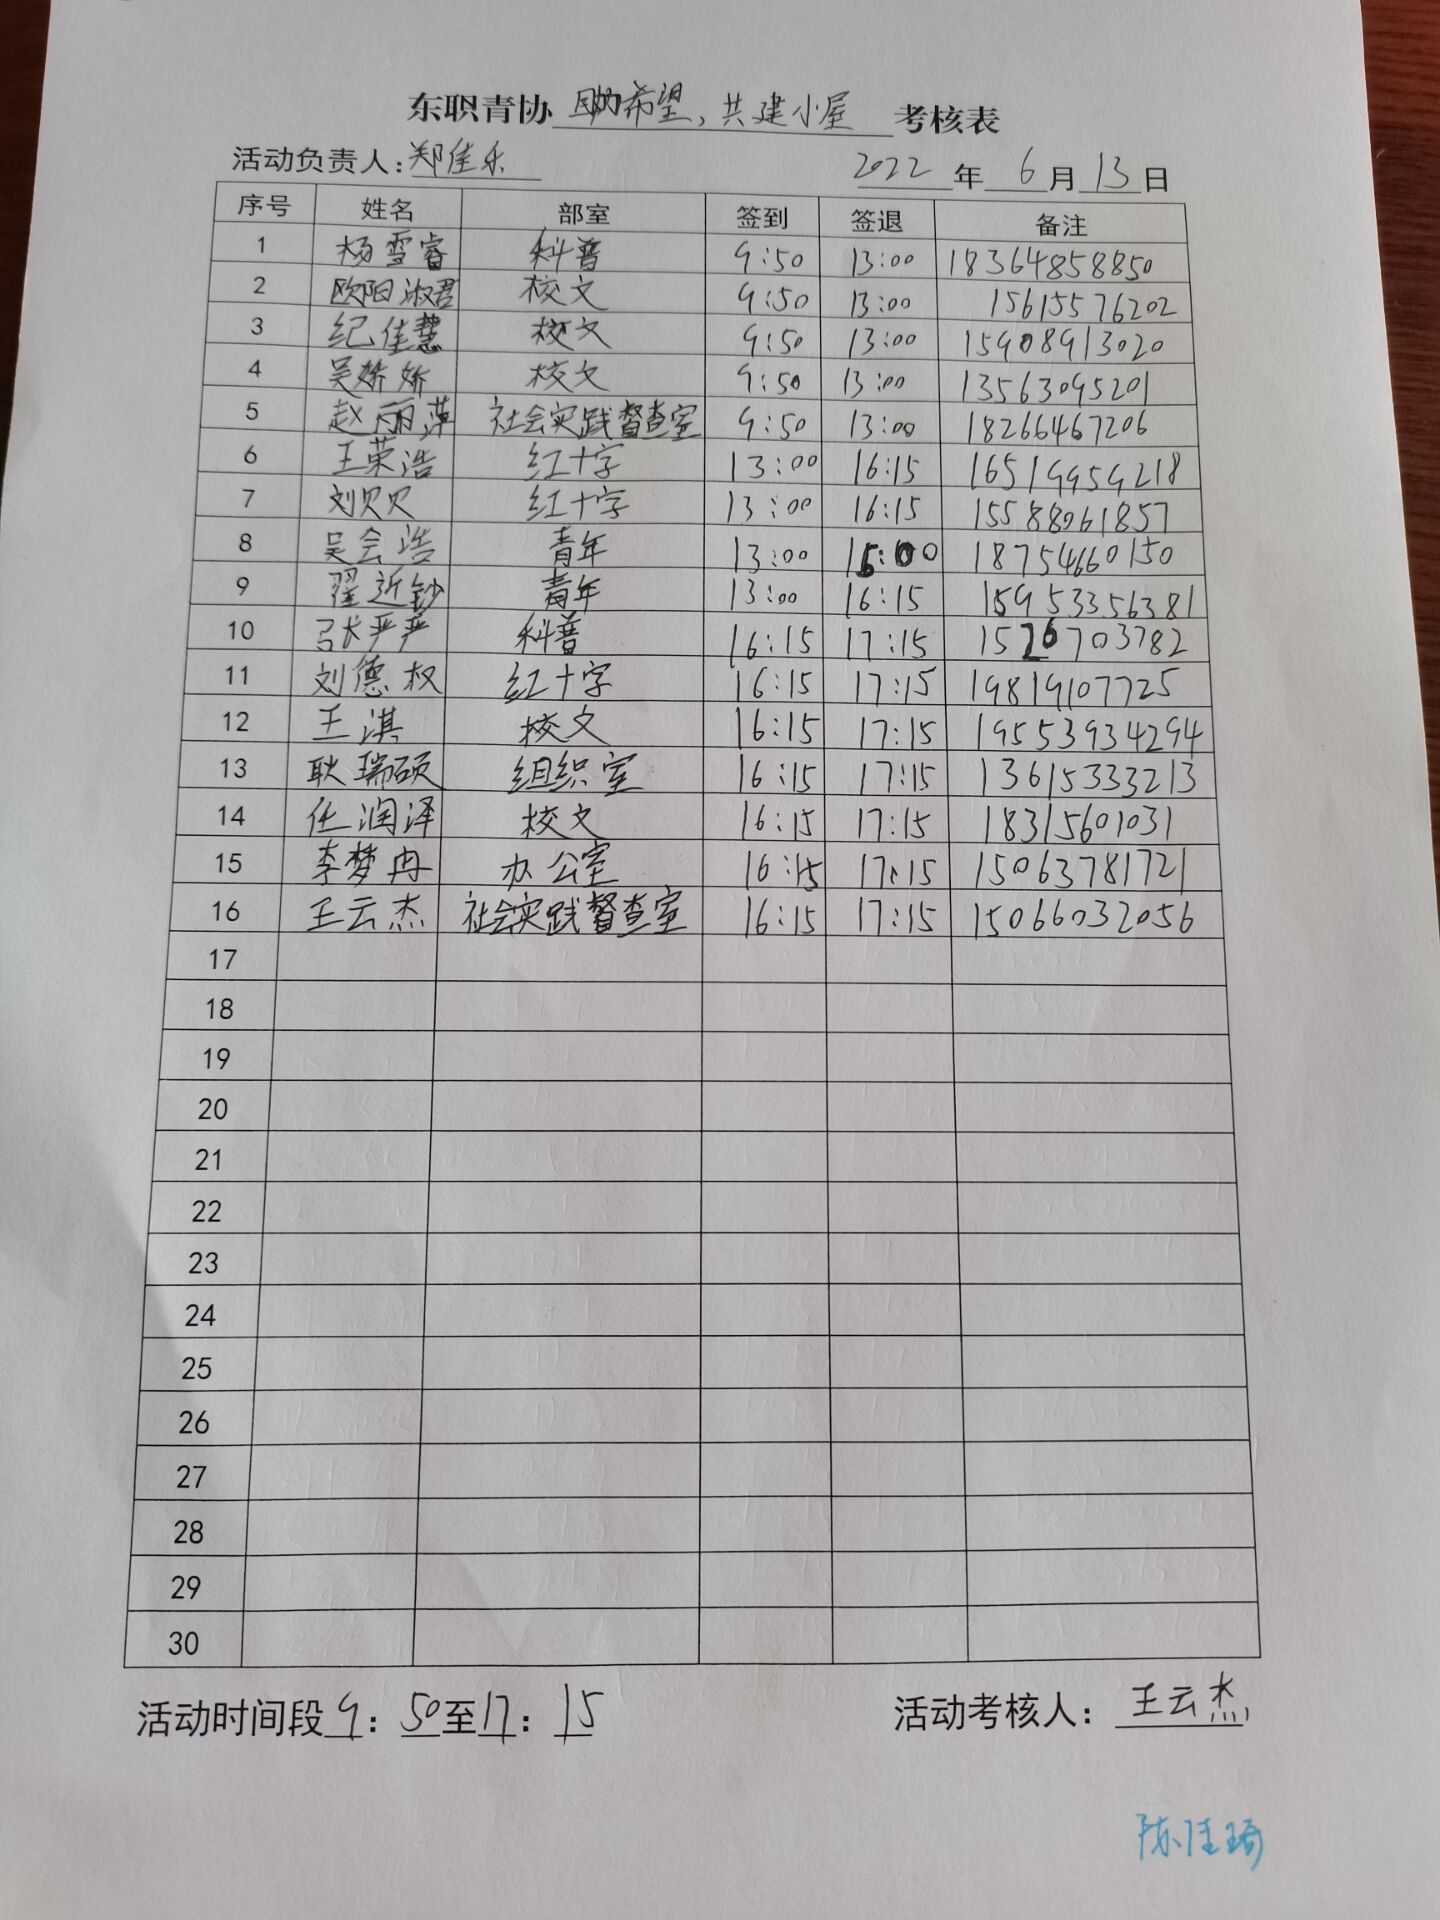 东职青协 助力希望，共建小屋 考核表
活动负责人：郑佳乐 2022 年 6 月 13 日
序号 姓名 部室 签到 签退 备注
1 杨雪睿 科普 9:50 13:00 18364858850
2 欧阳淑君 校文 9:50 13:00 15615576202
3 纪佳慧 校文 9:50 13:00 15908913020
4 吴娇娇 校文 9:50 13:00 13563095201
5 赵丽萍 社会实践督查室 9:50 13:00 18266467206
6 王荣浩 红十字 13:00 16:15 16519959218
7 刘贝贝 红十字 13:00 16:15 15588061857
8 吴会浩 青年 13:00 18754660150
9 翟近钞 青年 13:00 16:15 15953356381
10 张严严 科普 16:15 17:15
11 刘德权 红十字 16:15 17:15 19819107725
12 王淇 校文 16:15 17:15 19553934294
13 耿瑞硕 组织室 16:15 17:15 13615333213
14 任润泽 校文 16:15 17:15 18315601031
15 李梦冉 办公室 16:15 17:15 15063781721
16 王云杰 社会实践督查室 16:15 17:15 15066032056
17
18
19
20
21
22
23
24
25
26
27
28
29
30
活动时间段 9：50至17：15 活动考核人：王云杰
陈佳琦